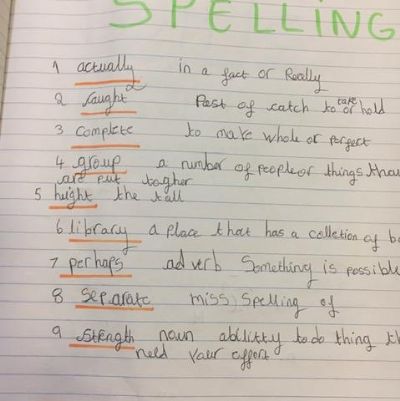 SPELLING
1 actually in a fact or Really
2 caught Past of catch to take or hold
3 complete to make whole or perfect
4 group a number of people or things
are put togher
5 hught the tall
6 library a place that has a colletion of
7 perhaps adverb Something is possible
8 separate miss spelling of
9 strength noun abilitty to do thing
need your effort